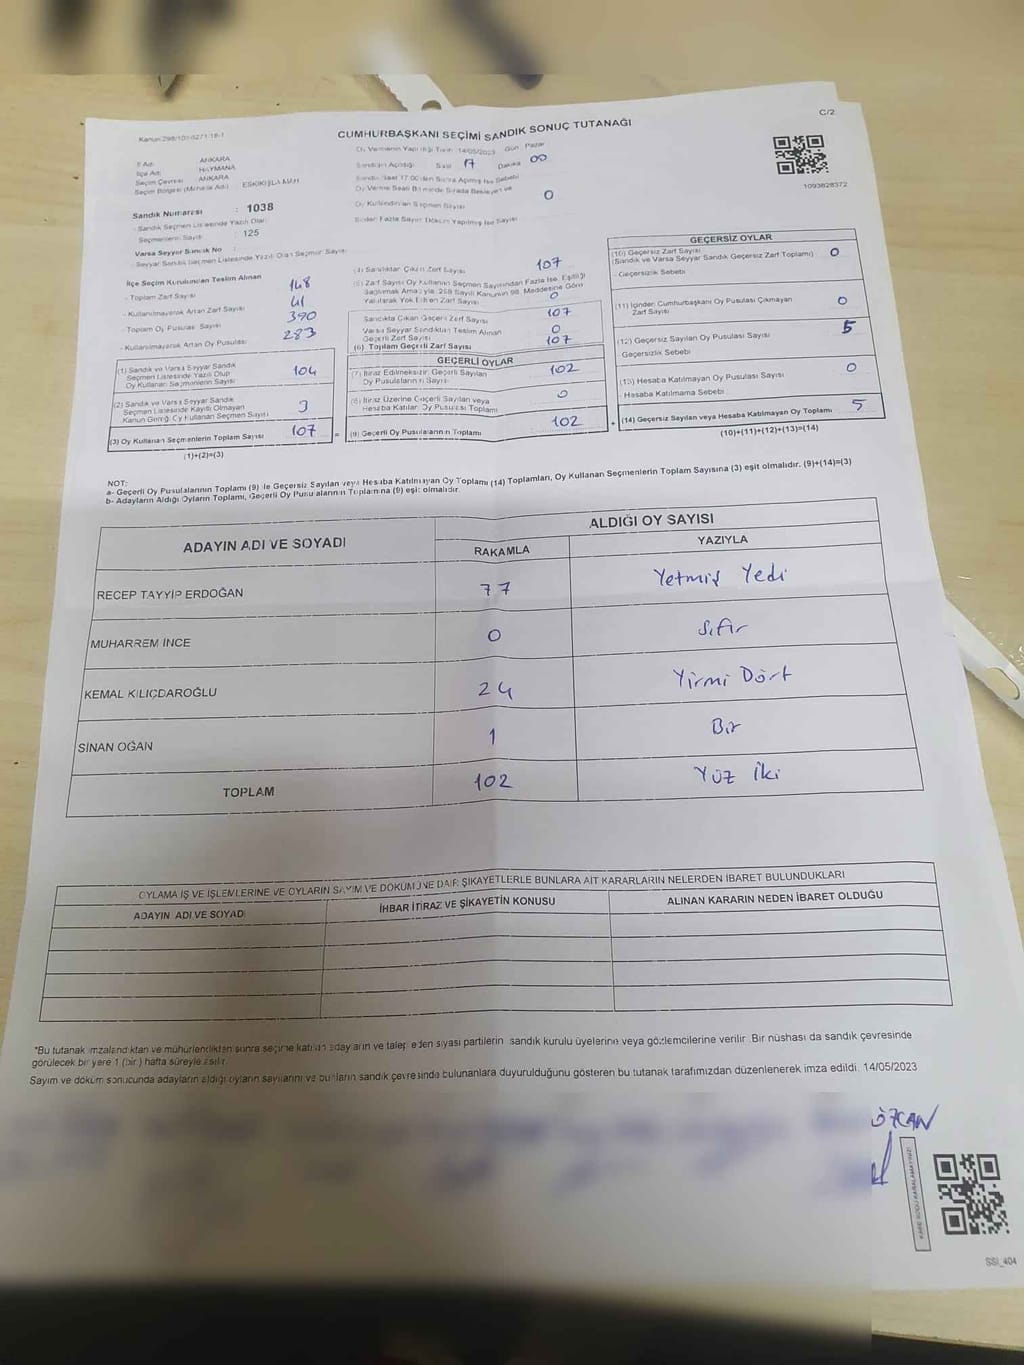 C/2
Kanun:298/105-0271:18-1
CUMHURBAŞKANI SEÇİMİ SANDIK SONUÇ TUTANAĞI
İl Adı: ANKARA
İlçe Adı: HAYMANA
Seçim Çevresi: ANKARA
Seçim Bölgesi (Mahalle Adı): ESKİKIŞLA MAH
Oy Vermenin Yapıldığı Tarih 14/05/2023 Gün Pazar
Sandığın Açıldığı Saat 17 Dakika 00
0
1093828372
Sandık Numarası : 1038
- Sandık Seçmen Listesinde Yazılı Olan
Seçmenlerin Sayısı : 125
Varsa Seyyar Sandık No :
- Seyyar Sandık Seçmen Listesinde Yazılı Olan Seçmen Sayısı
İlçe Seçim Kurulundan Teslim Alınan
- Toplam Zarf Sayısı 148
- Kullanılmayarak Artan Zarf Sayısı 41
- Toplam Oy Pusulası Sayısı 390
- Kullanılmayarak Artan Oy Pusulası 283
(1) Sandık ve Varsa Seyyar Sandık
Seçmen Listesinde Yazılı Olup
Oy Kullanan Seçmenlerin Sayısı 104
(2) Sandık ve Varsa Seyyar Sandık
Seçmen Listesinde Kayıtlı Olmayan
Kanun Gereği Oy Kullanan Seçmen Sayısı 3
(3) Oy Kullanan Seçmenlerin Toplam Sayısı 107 =
(1)+(2)=(3)
(4) Sandıktan Çıkan Zarf Sayısı 107
(5) Zarf Sayısı Oy Kullanan Seçmen Sayısından Fazla İse, Eşitliği
Sağlamak Amacıyla, 298 Sayılı Kanunun 98. Maddesine Göre
Yakılarak Yok Edilen Zarf Sayısı 0
Sandıkta Çıkan Geçerli Zarf Sayısı 107
Varsa Seyyar Sandıktan Teslim Alınan
Geçerli Zarf Sayısı 0
(6) Toplam Geçerli Zarf Sayısı 107
GEÇERLİ OYLAR
(7) İtiraz Edilmeksizin Geçerli Sayılan
Oy Pusulalarının Sayısı 102
(8) İtiraz Üzerine Geçerli Sayılan veya
Hesaba Katılan Oy Pusulası Toplamı 0
(9) Geçerli Oy Pusulalarının Toplamı 102 +
GEÇERSİZ OYLAR
(10) Geçersiz Zarf Sayısı
(Sandık ve Varsa Seyyar Sandık Geçersiz Zarf Toplamı) 0
- Geçersizlik Sebebi
(11) İçinden Cumhurbaşkanı Oy Pusulası Çıkmayan
Zarf Sayısı 0
(12) Geçersiz Sayılan Oy Pusulası Sayısı 5
- Geçersizlik Sebebi
(13) Hesaba Katılmayan Oy Pusulası Sayısı 0
- Hesaba Katılmama Sebebi
(14) Geçersiz Sayılan veya Hesaba Katılmayan Oy Toplamı 5
(10)+(11)+(12)+(13)=(14)
NOT:
a- Geçerli Oy Pusulalarının Toplamı (9) ile Geçersiz Sayılan veya Hesaba Katılmayan Oy Toplamı (14) Toplamları, Oy Kullanan Seçmenlerin Toplam Sayısına (3) eşit olmalıdır. (9)+(14)=(3)
b- Adayların Aldığı Oyların Toplamı, Geçerli Oy Pusulalarının Toplamına (9) eşit olmalıdır.
ADAYIN ADI VE SOYADI
ALDIĞI OY SAYISI
RAKAMLA YAZIYLA
RECEP TAYYİP ERDOĞAN 77 Yetmiş Yedi
MUHARREM İNCE 0 Sıfır
KEMAL KILIÇDAROĞLU 24 Yirmi Dört
SİNAN OĞAN 1 Bir
TOPLAM 102 Yüz İki
OYLAMA İŞ VE İŞLEMLERİNE VE OYLARIN SAYIM VE DÖKÜMÜNE DAİR ŞİKAYETLERLE BUNLARA AİT KARARLARIN NELERDEN İBARET BULUNDUKLARI
ADAYIN ADI VE SOYADI İHBAR İTİRAZ VE ŞİKAYETİN KONUSU ALINAN KARARIN NEDEN İBARET OLDUĞU
*Bu tutanak imzalandıktan ve mühürlendikten sonra seçime katılan adayların ve talep eden siyasi partilerin sandık kurulu üyelerine veya gözlemcilerine verilir. Bir nüshası da sandık çevresinde
görülecek bir yere 1 (bir) hafta süreyle asılır.
Sayım ve döküm sonucunda adayların aldığı oyların sayılarını ve bunların sandık çevresinde bulunanlara duyurulduğunu gösteren bu tutanak tarafımızdan düzenlenerek imza edildi. 14/05/2023
ÖZCAN
KARE KODU KARALAMAYINIZ
SSI_404